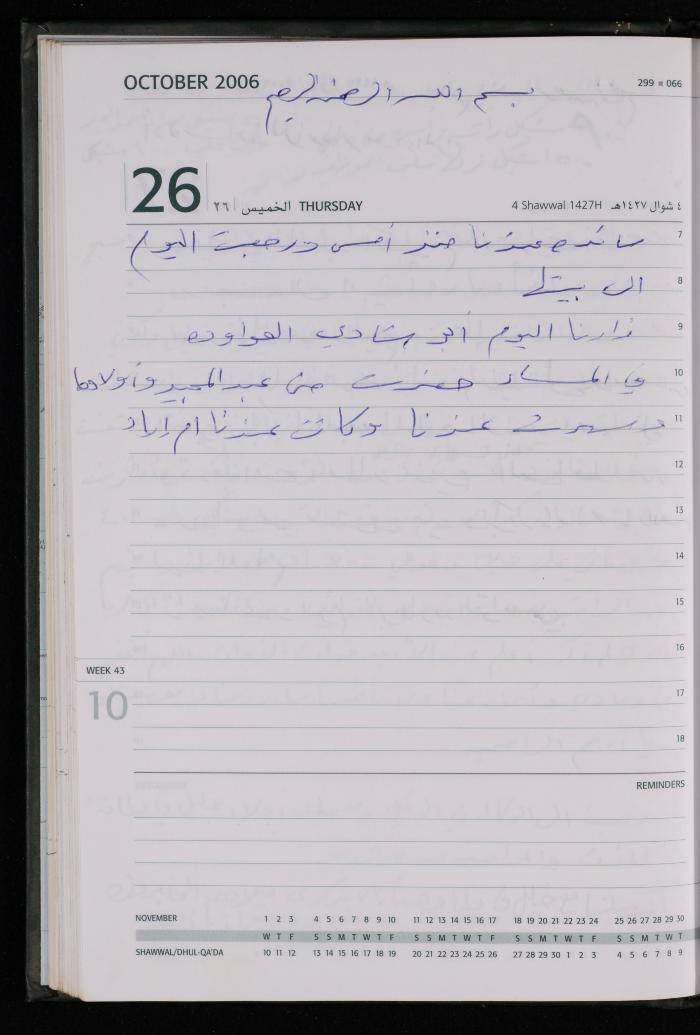 OCTOBER 2006
بسم الله الرحمن الرحيم
299 066
26 ٢٦ الخميس THURSDAY
4 Shawwal 1427H ٤ شوال ١٤٢٧هـ
7 عندنا منذ أمس ورجعت اليوم
8 الى بيتها
9 زارنا اليوم أبو شادي العواوده
10 في المساء حضرت منى عبد المجيد وأولادها
11 وسهرت عندنا وكانت عندنا أم إياد
12
13
14
15
16
WEEK 43
10
17
18
REMINDERS
NOVEMBER 1 2 3 4 5 6 7 8 9 10 11 12 13 14 15 16 17 18 19 20 21 22 23 24 25 26 27 28 29 30
W T F S S M T W T F S S M T W T F S S M T W T F S S M T W T
SHAWWAL/DHUL-QA'DA 10 11 12 13 14 15 16 17 18 19 20 21 22 23 24 25 26 27 28 29 30 1 2 3 4 5 6 7 8 9